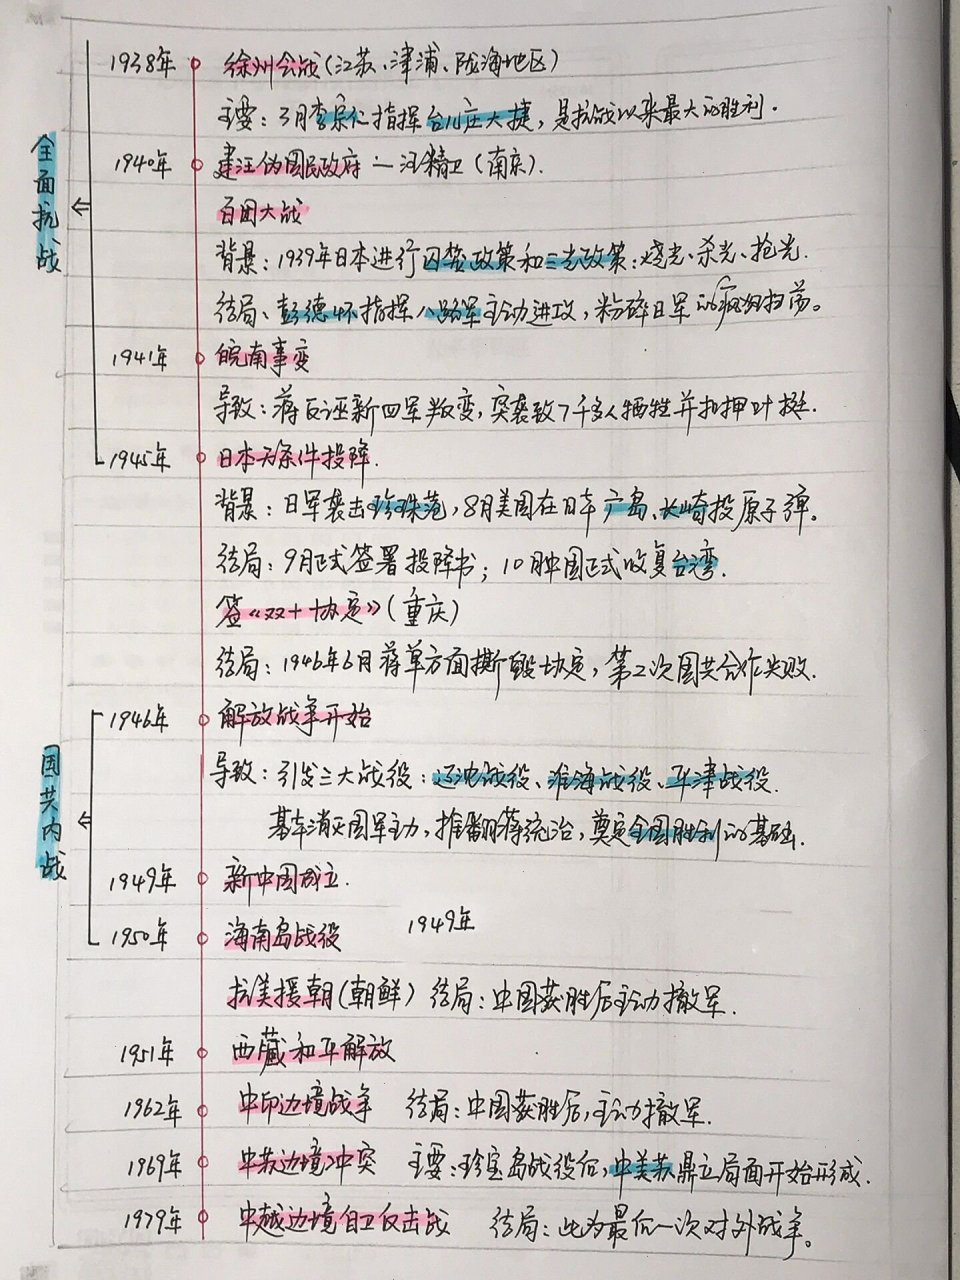 1938年 徐州会战(江苏、津浦、陇海地区)
主要:3月李宗仁指挥台儿庄大捷,是抗战以来最大的胜利.
1940年 建汪伪国民政府—汪精卫(南京).
百团大战
背景:1939年日本进行囚笼政策和三光政策:烧光、杀光、抢光.
结局、彭德怀指挥八路军主动进攻,粉碎日军的疯狂扫荡。
1941年 皖南事变
导致:蒋反诬新四军叛变,突袭致7千多人牺牲并扣押叶挺.
1945年 日本无条件投降.
背景:日军袭击珍珠港,8月美国在日本广岛、长崎投原子弹。
结局:9月正式签署投降书;10月中国正式收复台湾.
签《双十协定》(重庆)
结局:1946年6月蒋单方面撕毁协定,第2次国共合作失败.
全面抗战
1946年 解放战争开始
导致:引发三大战役:辽沈战役、淮海战役、平津战役.
基本消灭国军主力,推翻蒋统治,奠定全国胜利的基础.
1949年 新中国成立.
1950年 海南岛战役 1949年
国共内战
抗美援朝(朝鲜) 结局:中国获胜后主动撤军.
1951年 西藏和平解放
1962年 中印边境战争 结局:中国获胜后,主动撤军.
1969年 中苏边境冲突 主要:珍宝岛战役后,中美苏鼎立局面开始形成.
1979年 中越边境自卫反击战 结局:此为最后一次对外战争。